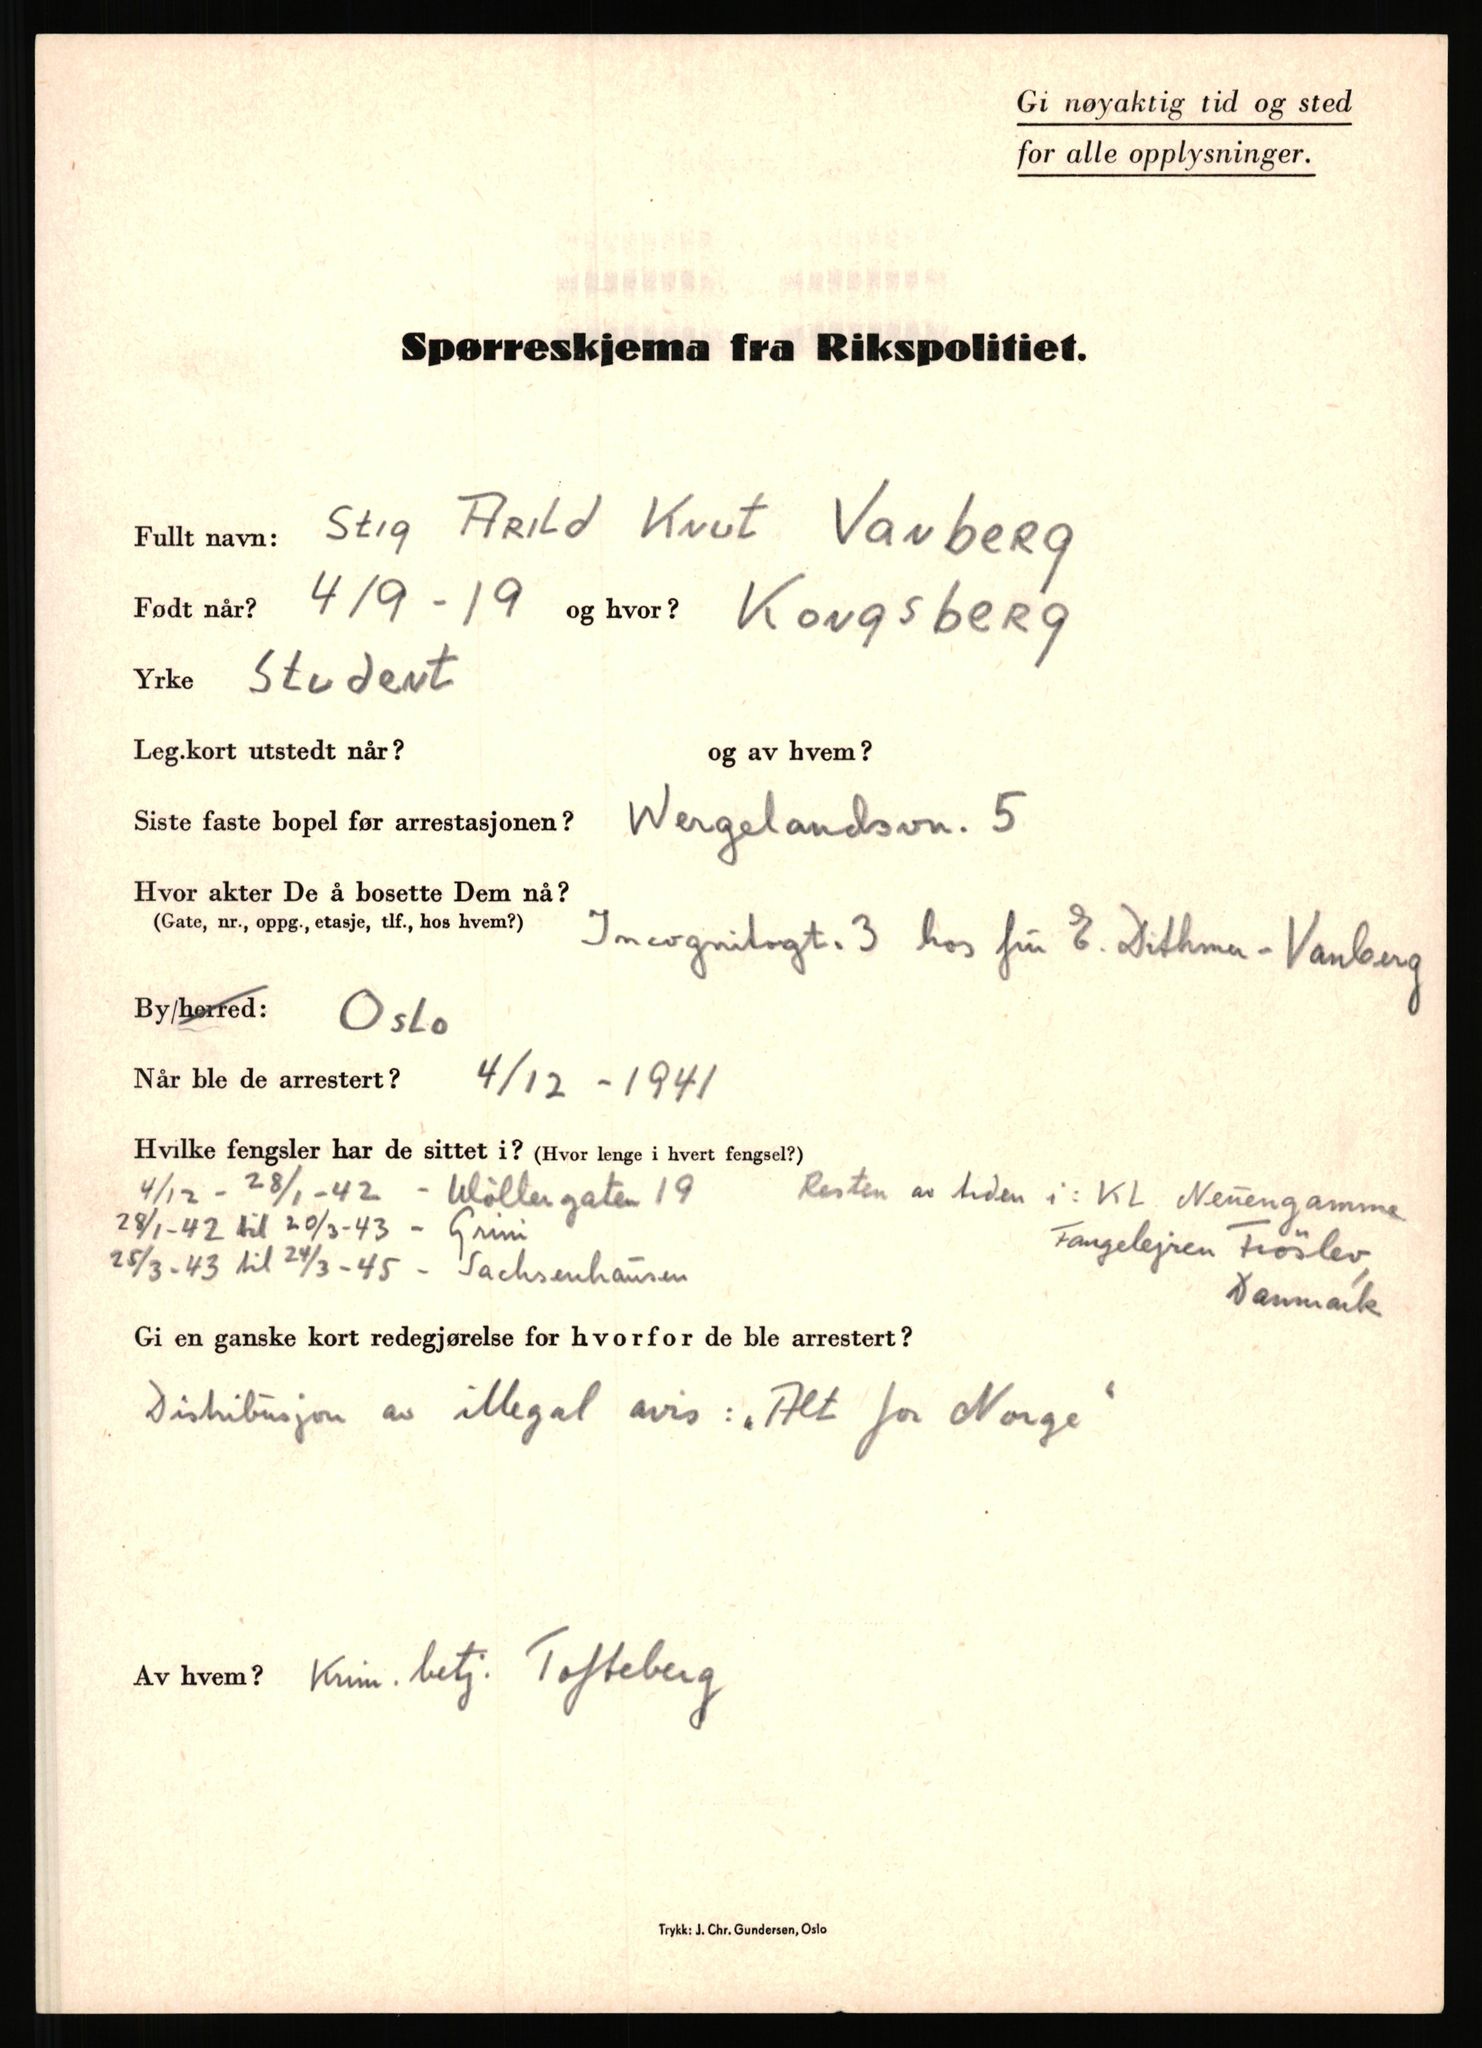 Gi nøyaktig tid og sted
for alle opplysninger.
Spørreskjema fra Rikspolitiet.
Fullt navn: Stig Arild Knut Vanberg
Født når? 4/9 - 19 og hvor? Kongsberg
Yrke Student
Leg.kort utstedt når? og av hvem?
Siste faste bopel før arrestasjonen? Wergelandsvn. 5
Hvor akter De å bosette Dem nå?
(Gate, nr., oppg., etasje, tlf., hos hvem?) Incognitogt. 3 hos fru E. Dithmer - Vanberg
By/herred: Oslo
Når ble de arrestert? 4/12 - 1941
Hvilke fengsler har de sittet i? (Hvor lenge i hvert fengsel?)
4/12 - 28/1 - 42 - Möllergaten 19 Resten av tiden i: KL Neuengamme
28/1 - 42 til 20/3 - 43 - Grini Fangelejren Fröslev,
25/3 - 43 til 24/3 - 45 - Sachsenhausen Danmark
Gi en ganske kort redegjørelse for hvorfor de ble arrestert?
Distribusjon av illegal avis: „Alt for Norge“
Av hvem? Krim. betj. Tofteberg
Trykk: J. Chr. Gundersen, Oslo